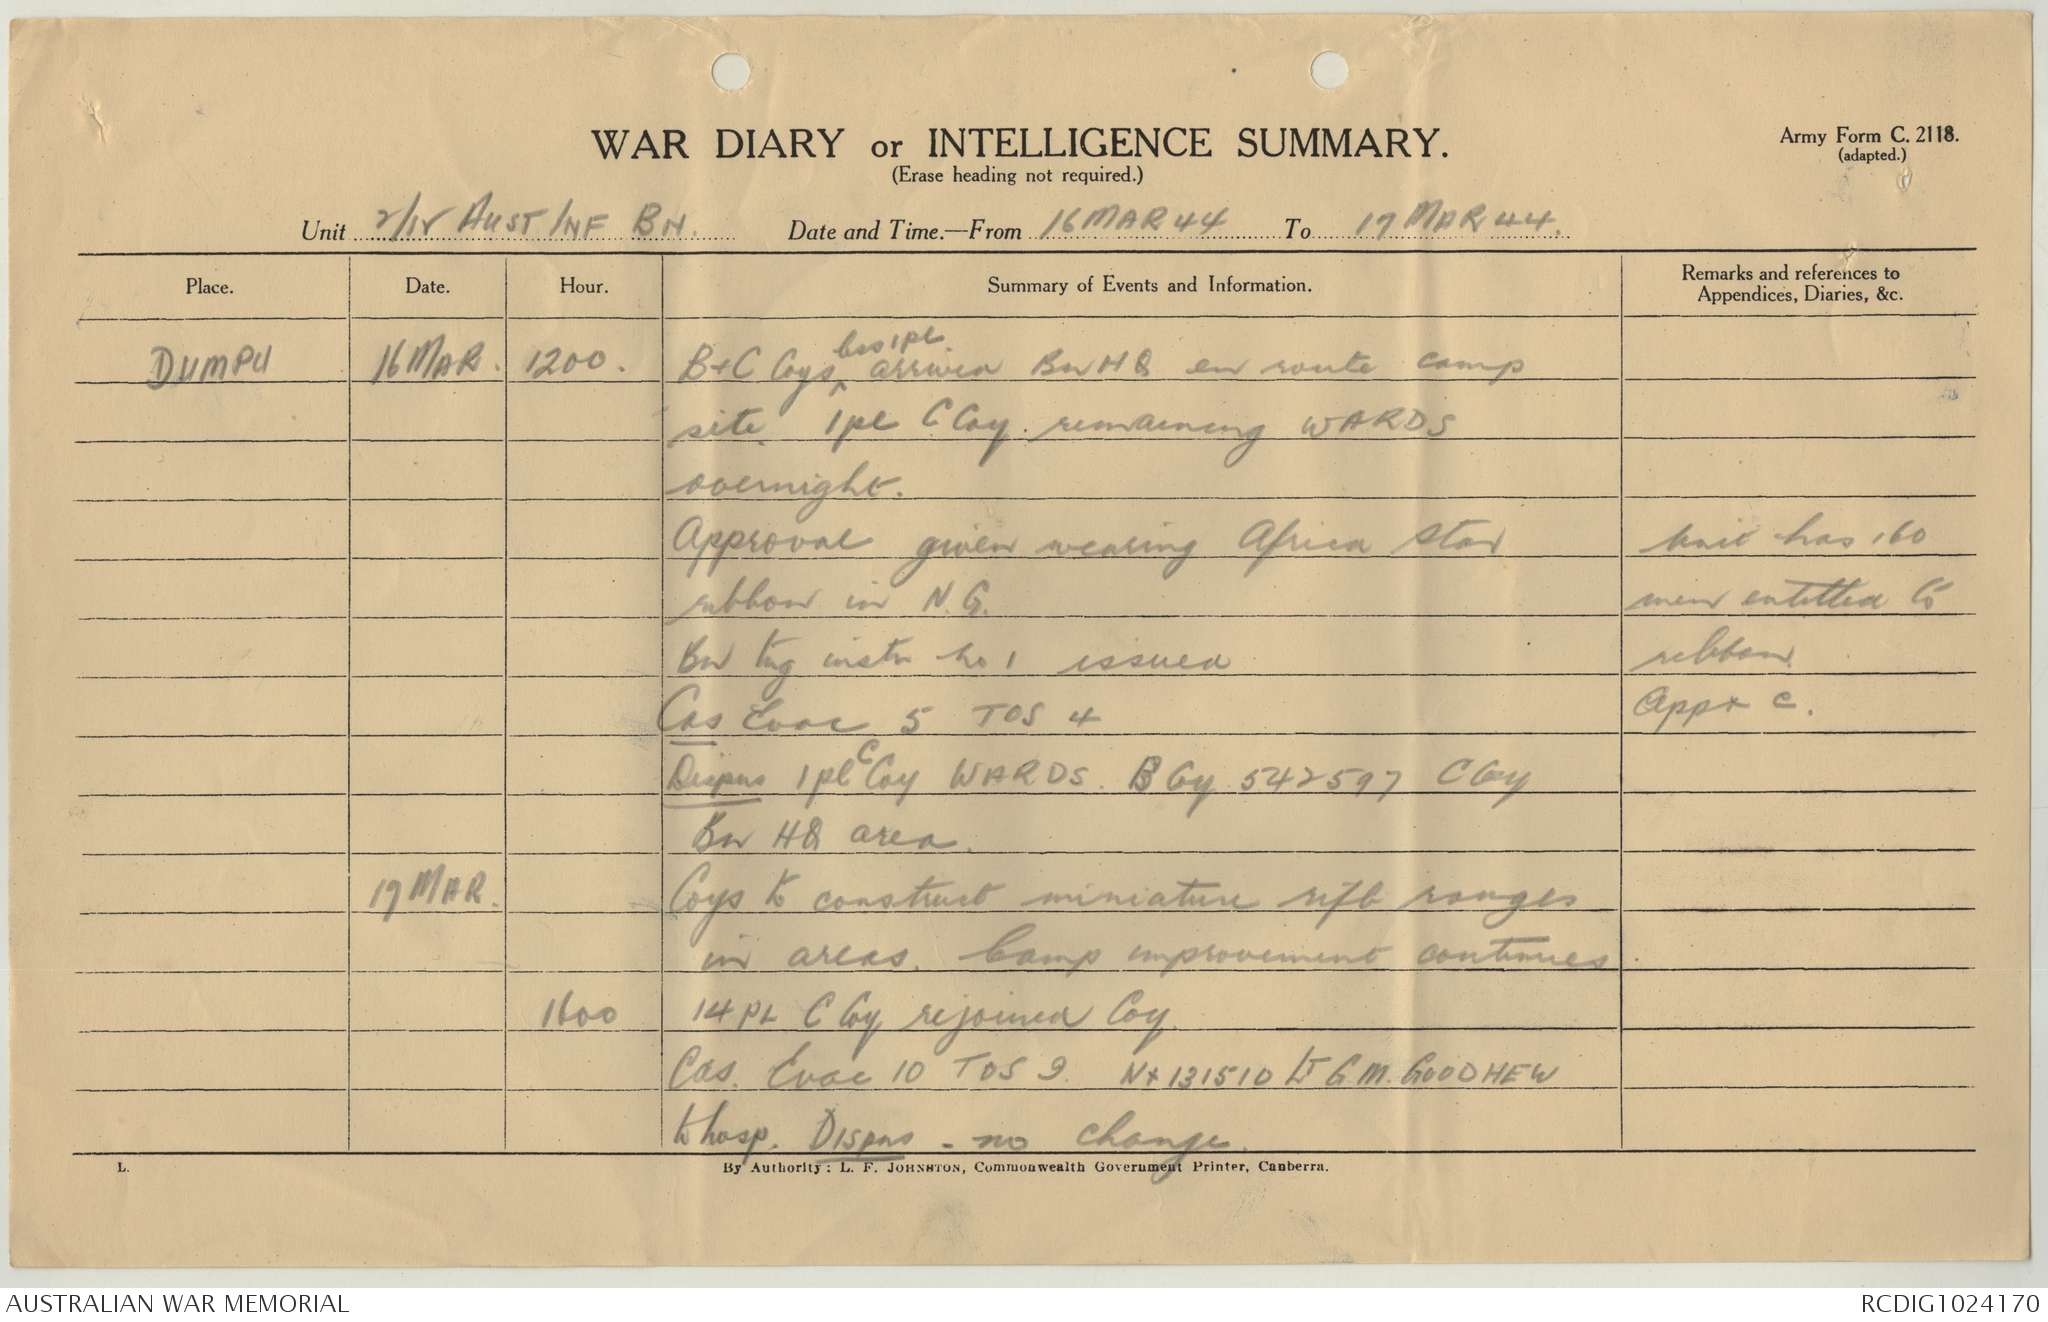 WAR DIARY or INTELLIGENCE SUMMARY.
(Erase heading not required.)
Army Form C. 2118.
(adapted.)
Unit AUST INF BN. Date and Time.—From 16 MAR 44 To 17 MAR 44.
Place. Date. Hour. Summary of Events and Information. Remarks and references to Appendices, Diaries, &c.
DUMPU 16 MAR. 1200. B + C Coys less 1 pl. arrived Bn HQ en route camp
site. 1 pl C Coy. remaining WARDS
overnight.
Approval given wearing Africa Star Unit has 160
ribbon in N.G. men entitled to
Bn trg instn No 1 issued ribbon.
Cas Evac 5 TOS 4 Appx C.
Dispns 1 pl C Coy WARDS. B Coy 542597 C Coy
Bn HQ area.
17 MAR. Coys to construct miniature rifle ranges
in areas. Camp improvement continues.
1600 14 PL C Coy rejoined Coy.
Cas. Evac 10 TOS 9. NX131510 LT G.M. GOODHEW
to hosp. Dispns - no change.
L.
By Authority: L. F. JOHNSTON, Commonwealth Government Printer, Canberra.
AUSTRALIAN WAR MEMORIAL
RCDIG1024170